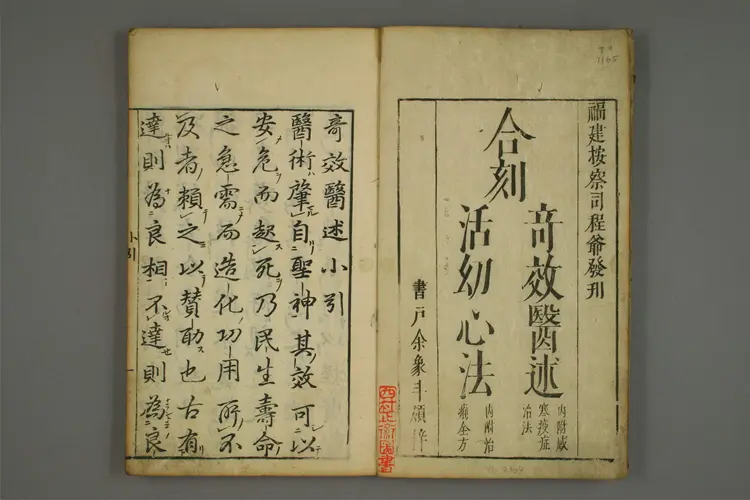 福建按察司程爺發刋
合刻
竒效醫述
內附咸
寒疫症
治法
活幼心法
內附治
癩全方
書戶余象斗
西荘文庫
竒效醫述小引
醫術肇自聖神其效可以
安危而起死乃民生壽命
之急需而造化功用所不
及者賴之以賛助也古有
達則為良相不達則為良
小引